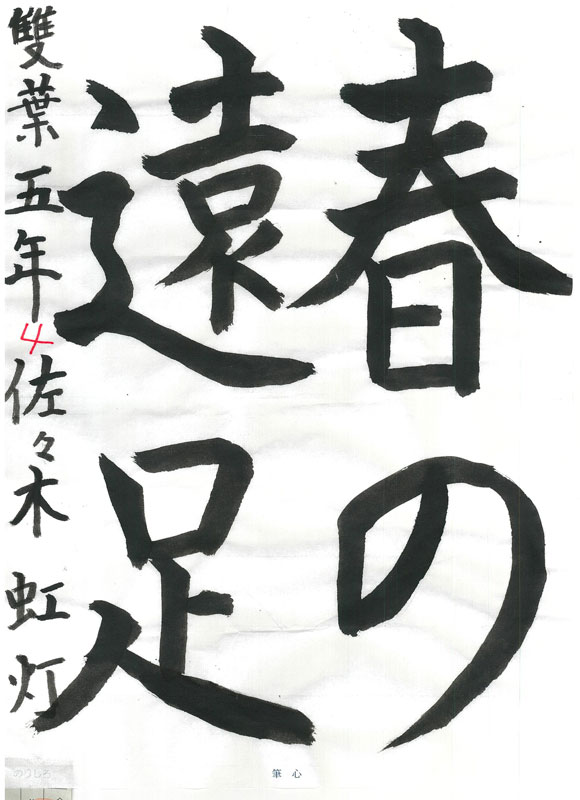 春の
遠足
雙葉五年4佐々木虹灯
筆心
のりしろ